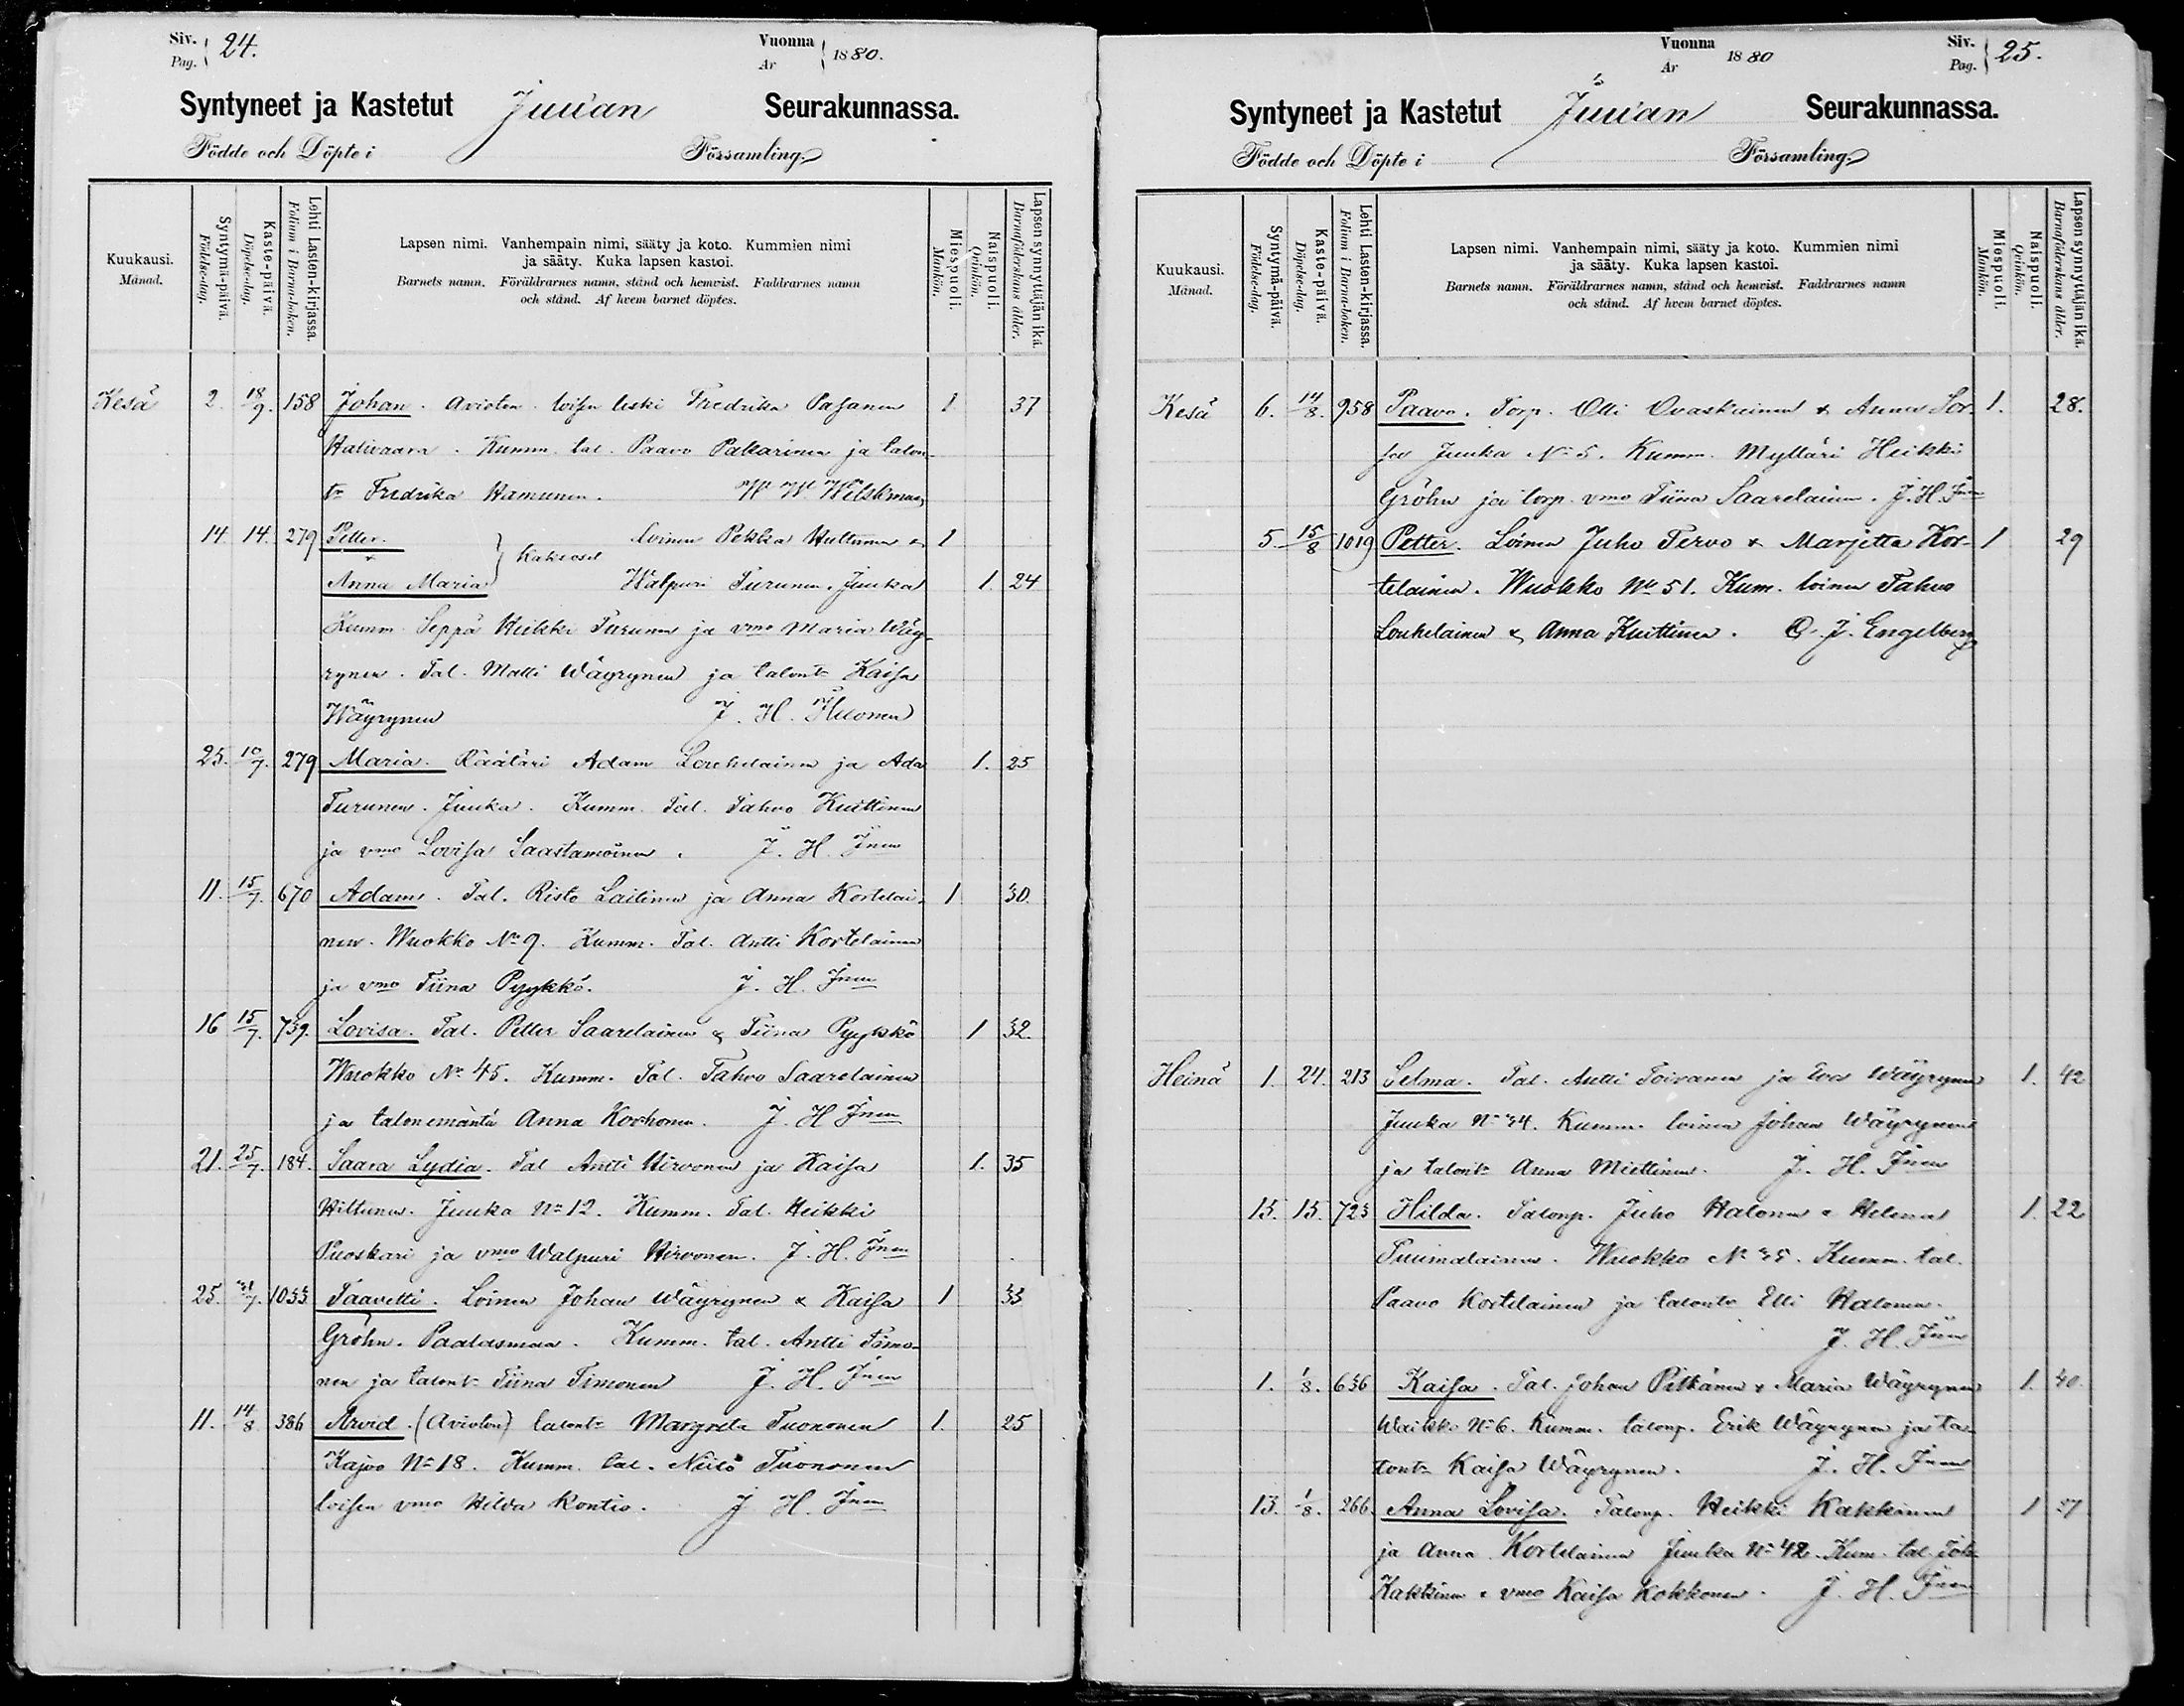 Siv. Pag. 24.
Vuonna År 1880.
Syntyneet ja Kastetut Juuan Seurakunnassa.
Födde och Döpte i Församling.
Kuukausi. Månad.
Syntymä-päivä. Födelse-dag.
Kaste-päivä. Döpelse-dag.
Lehti Lasten-kirjassa. Folium i Barna-boken.
Lapsen nimi. Vanhempain nimi, sääty ja koto. Kummien nimi
ja sääty. Kuka lapsen kastoi.
Barnets namn. Föräldrarnes namn, stånd och hemvist. Faddrarnes namn
och stånd. Af hvem barnet döptes.
Miespuoli. Mankön.
Naispuoli. Qvinkön.
Lapsen synnyttäjän ikä. Barnaföderskans ålder.
Kesä 2. 18/9. 158 Johan. Avioton. loisen leski Fredrika Pasanen 1 37
Halivaara. Kumm. tal. Paavo Pakarinen ja talon-
tr Fredrika Hamunen. W W Wilskman
14. 14. 279 Petter. Loinen Pekka Hultunen & 1
& Kaksoset
Anna Maria Walpuri Turunen, Juuka 1. 24
Kumm. Seppä Heikki Turunen ja vmo Maria Wäy-
rynen. Tal. Matti Wäyrynen ja talontr Kaisa
Wäyrynen J. H. Hilonen
25. 10/7. 279 Maria. Räätäri Adam Louhelainen ja Ada 1. 25
Turunen. Juuka. Kumm. Tal. Tahvo Kuittinen
ja vmo Lovisa Saastamoinen. J. H. Jnen
11. 15/7. 670 Adam. Tal. Risto Laitinen ja Anna Kortelai- 1 30.
nen. Wuokko No 9. Kumm. Tal. Antti Kortelainen
ja vmo Tiina Pyykkö. J. H. Jnen
16 15/7. 739. Lovisa. Tal. Petter Saarelainen & Tiina Pyykkö 1 32.
Wuokko No 45. Kumm. Tal. Tahvo Saarelainen
ja talonemäntä Anna Korhonen. J. H Jnen
21. 25/7. 184. Saara Lydia. Tal Antti Hirvonen ja Kaisa 1. 35
Hiltunen. Juuka No 12. Kumm. Tal. Heikki
Puoskari ja vmo Walpuri Hirvonen. J. H. Jnen
25. 31/7. 1033. Taavetti. Loinen Johan Wäyrynen & Kaisa 1 33
Gröhn. Paalasmaa. Kumm. tal. Antti Timo-
nen ja talontr Tiina Timonen J. H. Jnen
11. 14/8 386 Arvid. (Avioton) talontr Margreta Tuononen 1. 25
Kajoo No 18. Kumm. tal. Niilo Tuononen
loisen vmo Hilda Kontio. J H. Jnen
Vuonna År 1880
Siv. Pag. 25.
Syntyneet ja Kastetut Juuan Seurakunnassa.
Födde och Döpte i Församling.
Kuukausi. Månad.
Syntymä-päivä. Födelse-dag.
Kaste-päivä. Döpelse-dag.
Lehti Lasten-kirjassa. Folium i Barna-boken.
Lapsen nimi. Vanhempain nimi, sääty ja koto. Kummien nimi
ja sääty. Kuka lapsen kastoi.
Barnets namn. Föräldrarnes namn, stånd och hemvist. Faddrarnes namn
och stånd. Af hvem barnet döptes.
Miespuoli. Mankön.
Naispuoli. Qvinkön.
Lapsen synnyttäjän ikä. Barnaföderskans ålder.
Kesä 6. 14/8. 958 Paavo. Torp. Olli Ovaskainen & Anna Sor- 1. 28.
sa Juuka No 5. Kumm. Mylläri Heikki
Gröhn ja torp. vmo Tiina Saarelainen. J. H. Jnen
5. 15/8 1019 Petter. Loinen Juho Tervo & Marjetta Kor- 1 29
telainen. Wuokko No 51. Kum. loinen Tahvo
Louhelainen & Anna Kuittinen. O. J. Engelberg
Heinä 1. 21. 213 Selma. Tal. Antti Toivanen ja Eva Wäyrynen 1. 42
Juuka No 34. Kumm. loinen Johan Wäyrynen
ja talontr Anna Miettinen. J. H. Jnen
15. 15. 723 Hilda. Talonp. Juho Halonen & Helena 1. 22
Puumalainen. Wuokko No 35. Kumm. tal.
Paavo Kortelainen ja talontr Elli Halonen.
J. H. Jnen
1. 1/8. 636 Kaisa. Tal. Johan Pitkänen & Maria Wäyrynen 1. 40.
Waikko No 6. Kumm. talonp. Erik Wäyrynen ja ta-
lontr Kaisa Wäyrynen. J. H. Jnen
13. 1/8. 266. Anna Lovisa. Talonp. Heikki Kakkinen 1 27
ja Anna Kortelainen Juuka No 42. Kum. tal. Joh.
Kakkinen & vmo Kaisa Kokkonen. J. H. Jnen